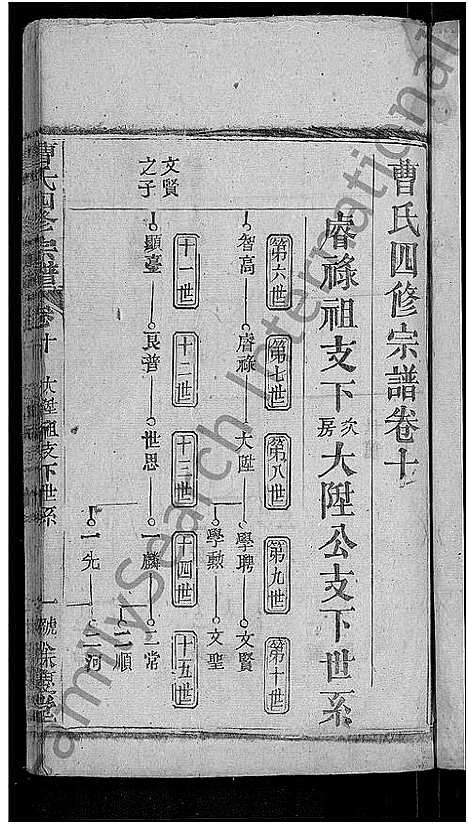 曹氏四修宗譜卷十
睿祿祖支下次房大陞公支下世系
第六世 第七世 第八世 第九世 第十世
智高 睿祿 大陞 學聘 文賢
學勳 文聖
十一世 十二世 十三世 十四世 十五世
文賢之子
顯臺 良普 世思 一麟 二常
二順
一先 二河
曹氏四修宗譜 卷十 大陞祖支下世系 一號
FamilySearch International